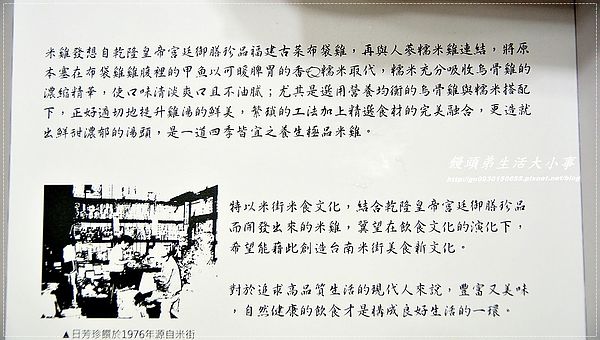 米雞發想自乾隆皇帝宮廷御膳珍品福建古菜布袋雞，再與人蔘糯米雞連結，將原
本塞在布袋雞雞腹裡的甲魚以可暖脾胃的香Q糯米取代，糯米充分吸收烏骨雞的
濃縮精華，使口味清淡爽口且不油膩；尤其是選用營養均衡的烏骨雞與糯米搭配
下，正好適切地提升雞湯的鮮美，繁瑣的工法加上精選食材的完美融合，更造就
出鮮甜濃郁的湯頭，是一道四季皆宜之養生極品米雞。
饅頭弟生活大小事
特以米街米食文化，結合乾隆皇帝宮廷御膳珍品
而開發出來的米雞，冀望在飲食文化的演化下，
希望能藉此創造台南米街美食新文化。
對於追求高品質生活的現代人來說，豐富又美味
，自然健康的飲食才是構成良好生活的一環。
▲日芳珍饌於1976年源自米街